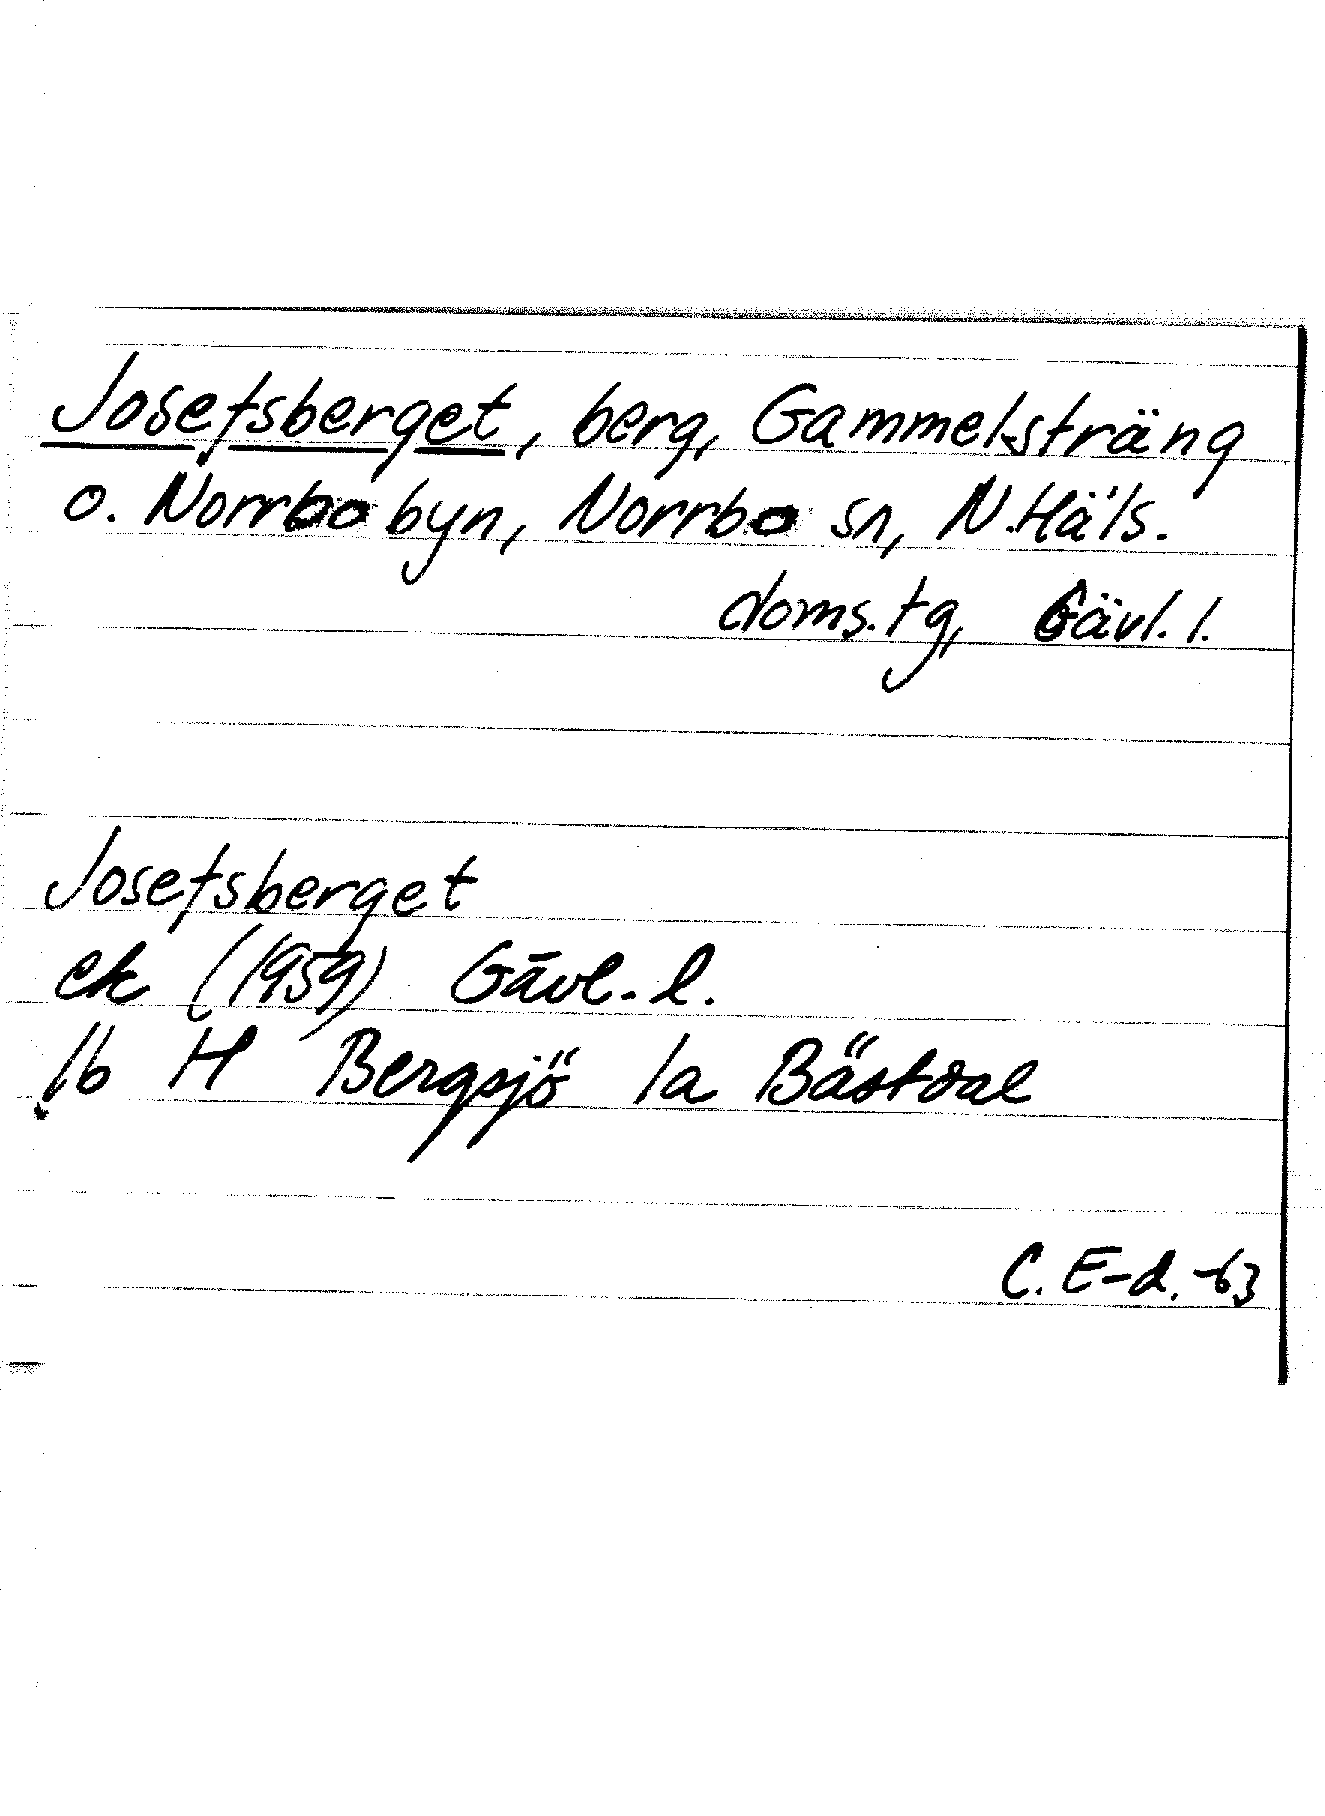 Josefsberget, berg, Gammelsträng
o. Norrbo byn, Norrbo sn, N.Häls.
doms.tg, Gävl. l.
Josefsberget
ek (1959) Gävl. l.
16 H Bergsjö 1a Bästdal
C. E-d. -63